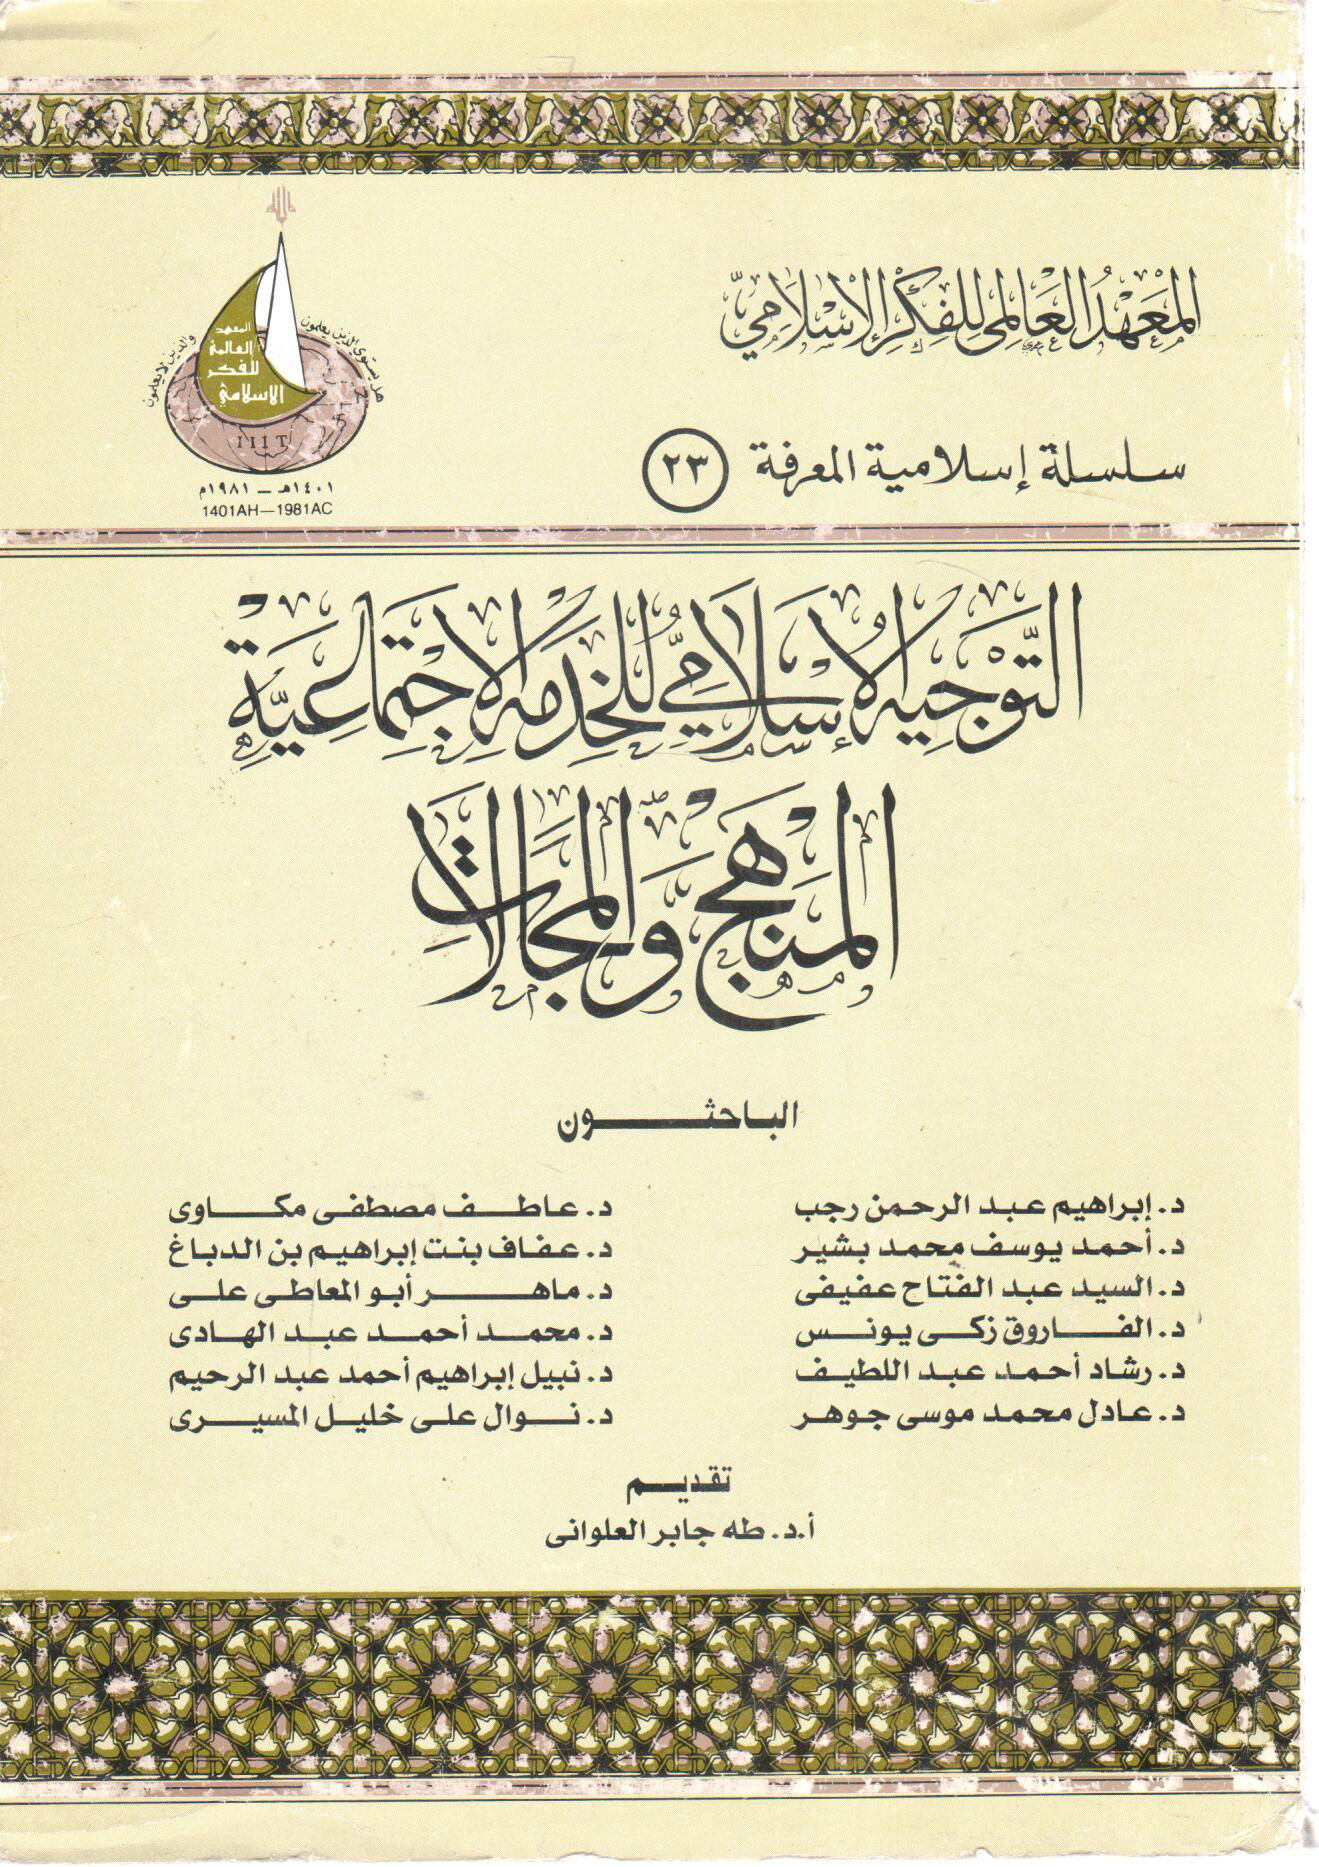 المَعْهَدُ العَالَمِي لِلفِكْرِ الإِسْلَامِيّ
المعهد
العالمي
للفكر
الإسلامي
هل يستوي الذين يعلمون والذين لا يعلمون
IIIT
١٤٠١هـ — ١٩٨١م
1401AH—1981AC
سلسلة إسلامية المعرفة ٢٣
التَّوْجِيه الإسْلَامِيُّ لِلخِدْمَة الاجْتِمَاعِيَّةِ
المَنهَج وَالمَجَالَات
الباحثون
د. إبراهيم عبد الرحمن رجب
د. أحمد يوسف محمد بشير
د. السيد عبد الفتاح عفيفى
د. الفاروق زكى يونس
د. رشاد أحمد عبد اللطيف
د. عادل محمد موسى جوهر
د. عاطف مصطفى مكاوى
د. عفاف بنت إبراهيم بن الدباغ
د. ماهر أبو المعاطى على
د. محمد أحمد عبد الهادى
د. نبيل إبراهيم أحمد عبد الرحيم
د. نوال على خليل المسيرى
تقديم
أ.د. طه جابر العلوانى